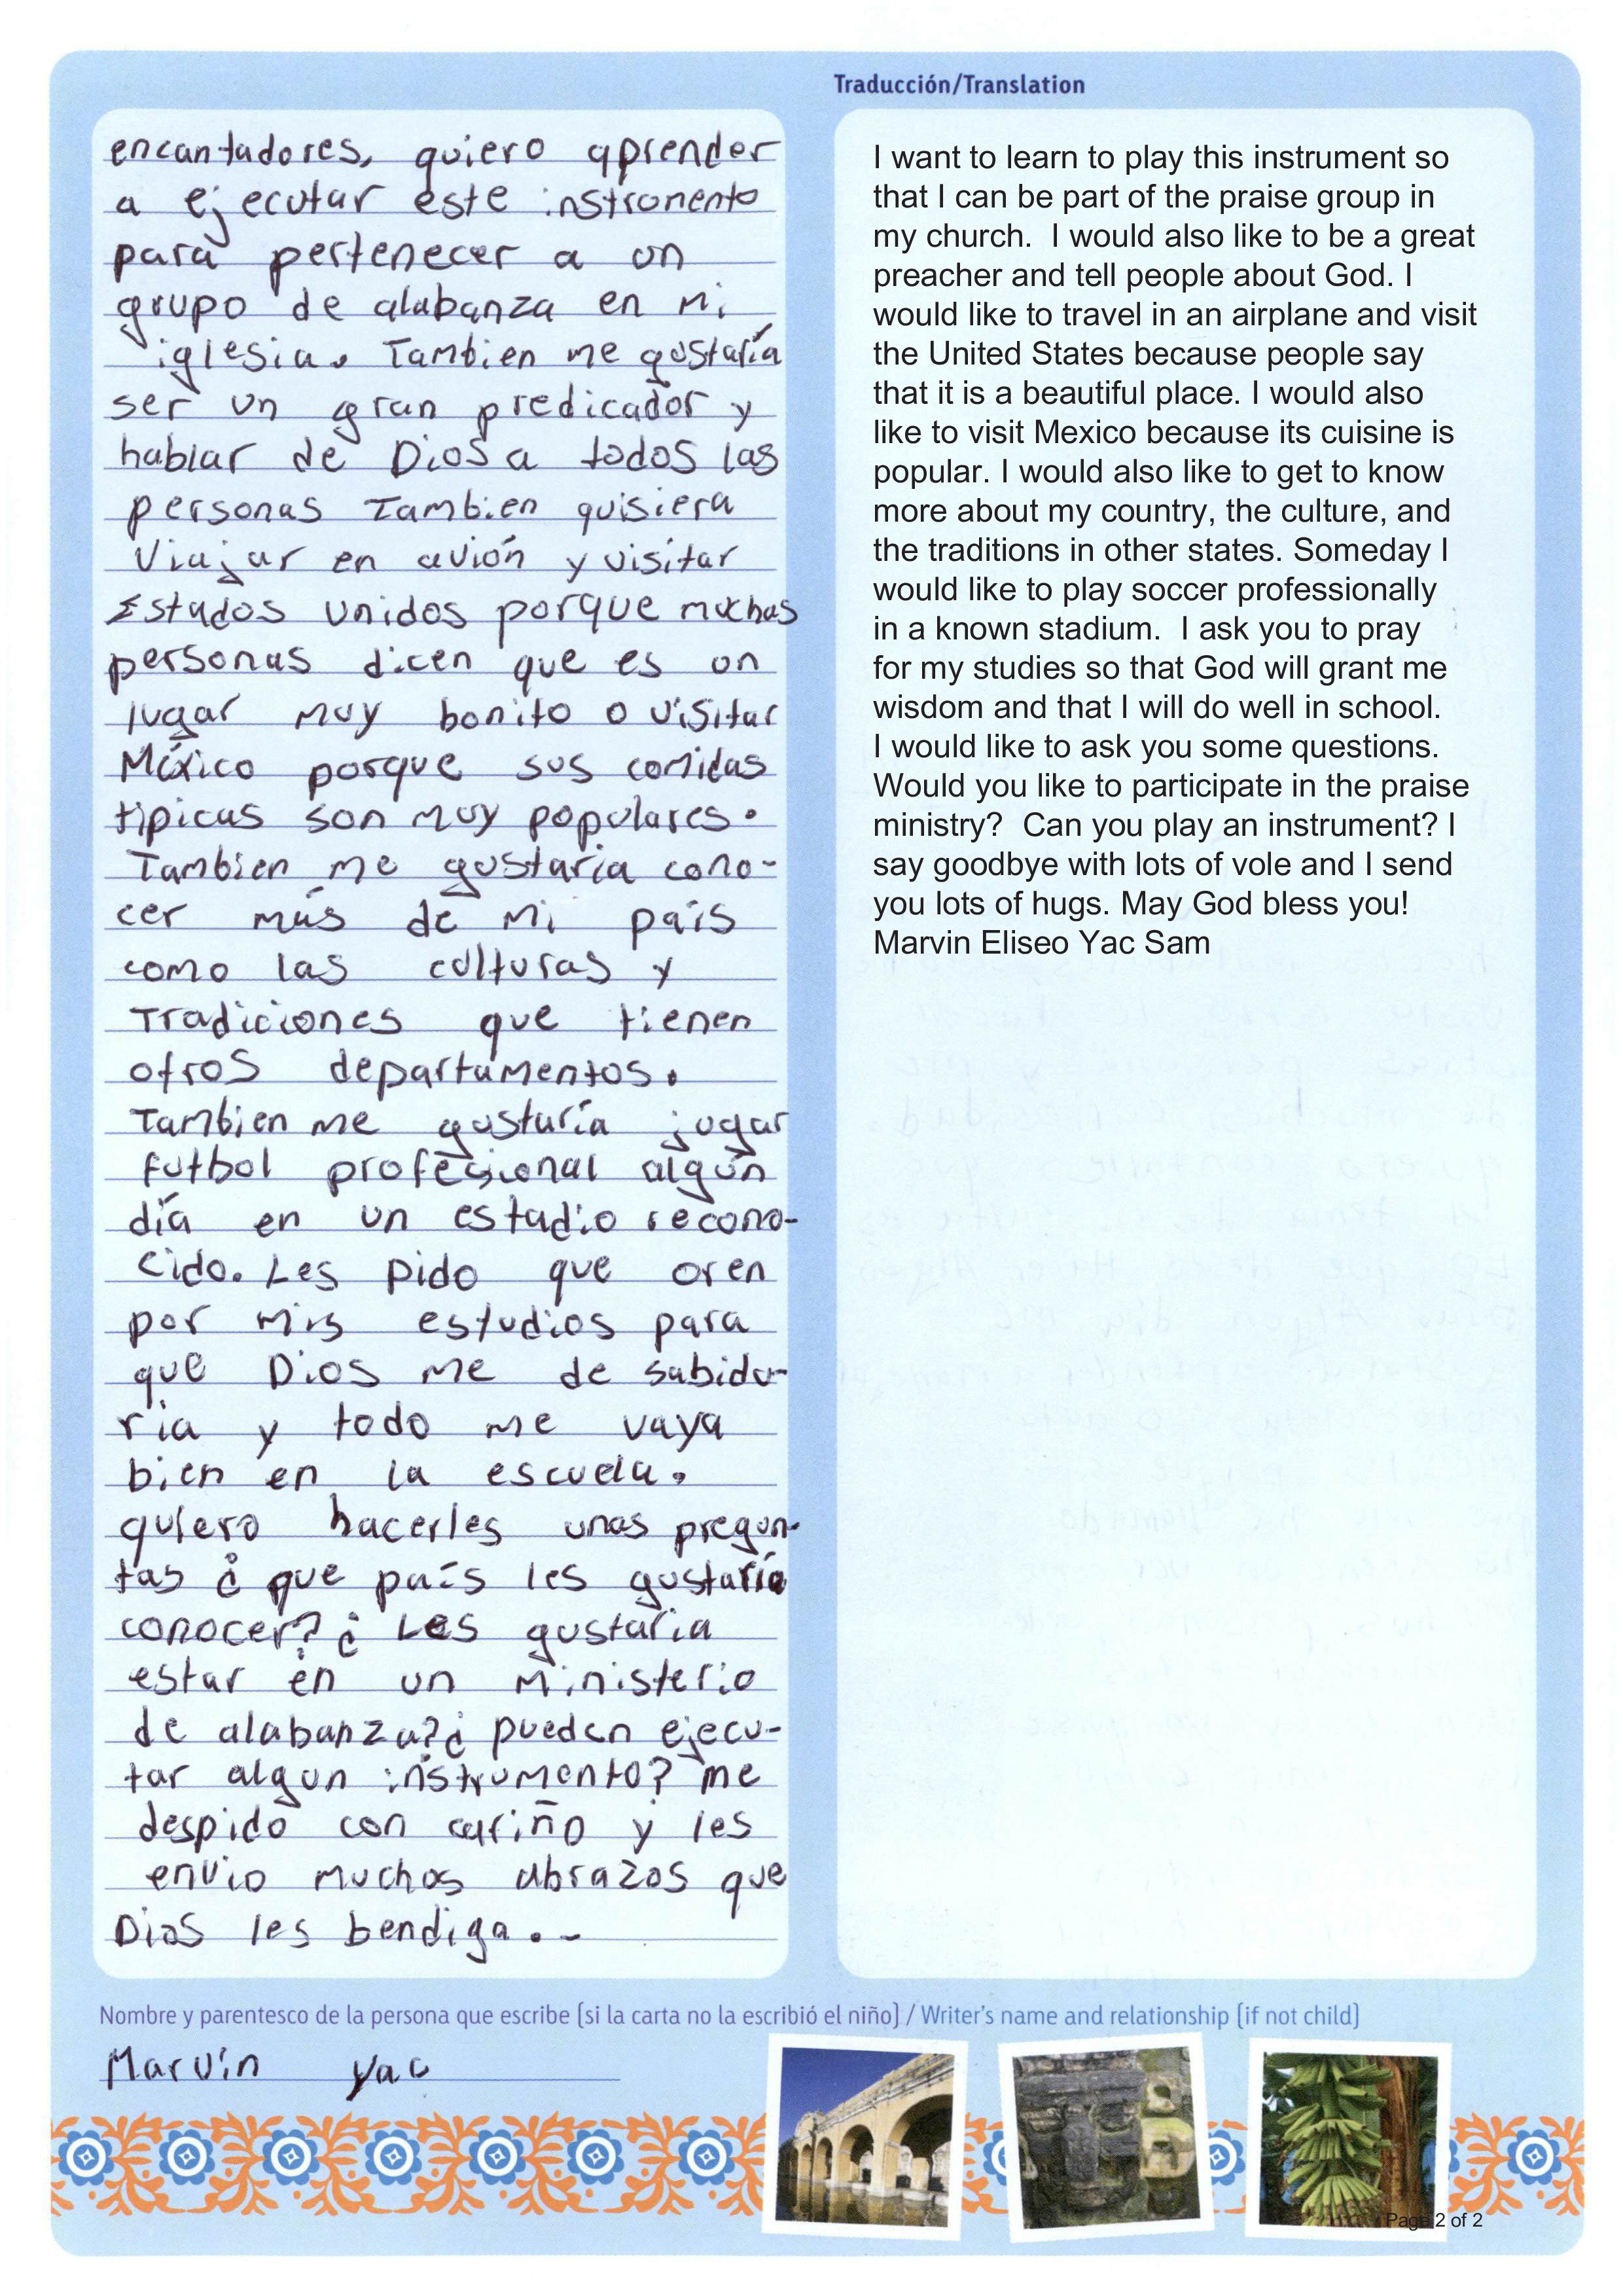 Traducción/Translation
encantadores, quiero aprender
a ejecutar este instromento
para pertenecer a un
grupo de alabanza en mi
iglesia. Tambien me gustaría
ser un gran predicador y
hablar de Dios a todos las
personas Tambien quisiera
viajar en avión y visitar
Estados Unidos porque muchas
personas dicen que es un
lugar muy bonito o visitar
México porque sus comidas
tipicas son muy populares.
Tambien me gustaría cono-
cer más de mi país
como las culturas y
Tradiciones que tienen
otros departamentos.
Tambien me gustaría jugar
futbol profesional algún
día en un estadio recono-
cido. Les pido que oren
por mis estudios para
que Dios me de sabidu-
ría y todo me vaya
bien en la escuela.
quiero hacerles unas pregun-
tas ¿ que país les gustaría
conocer? ¿ Les gustaria
estar en un Ministerio
de alabanza? ¿ pueden ejecu-
tar algun instrumento? me
despido con cariño y les
envio muchos abrazos que
Dios les bendiga. -
I want to learn to play this instrument so
that I can be part of the praise group in
my church. I would also like to be a great
preacher and tell people about God. I
would like to travel in an airplane and visit
the United States because people say
that it is a beautiful place. I would also
like to visit Mexico because its cuisine is
popular. I would also like to get to know
more about my country, the culture, and
the traditions in other states. Someday I
would like to play soccer professionally
in a known stadium. I ask you to pray
for my studies so that God will grant me
wisdom and that I will do well in school.
I would like to ask you some questions.
Would you like to participate in the praise
ministry? Can you play an instrument? I
say goodbye with lots of vole and I send
you lots of hugs. May God bless you!
Marvin Eliseo Yac Sam
Nombre y parentesco de la persona que escribe (si la carta no la escribió el niño) / Writer's name and relationship (if not child)
Marvin Yac
Page 2 of 2